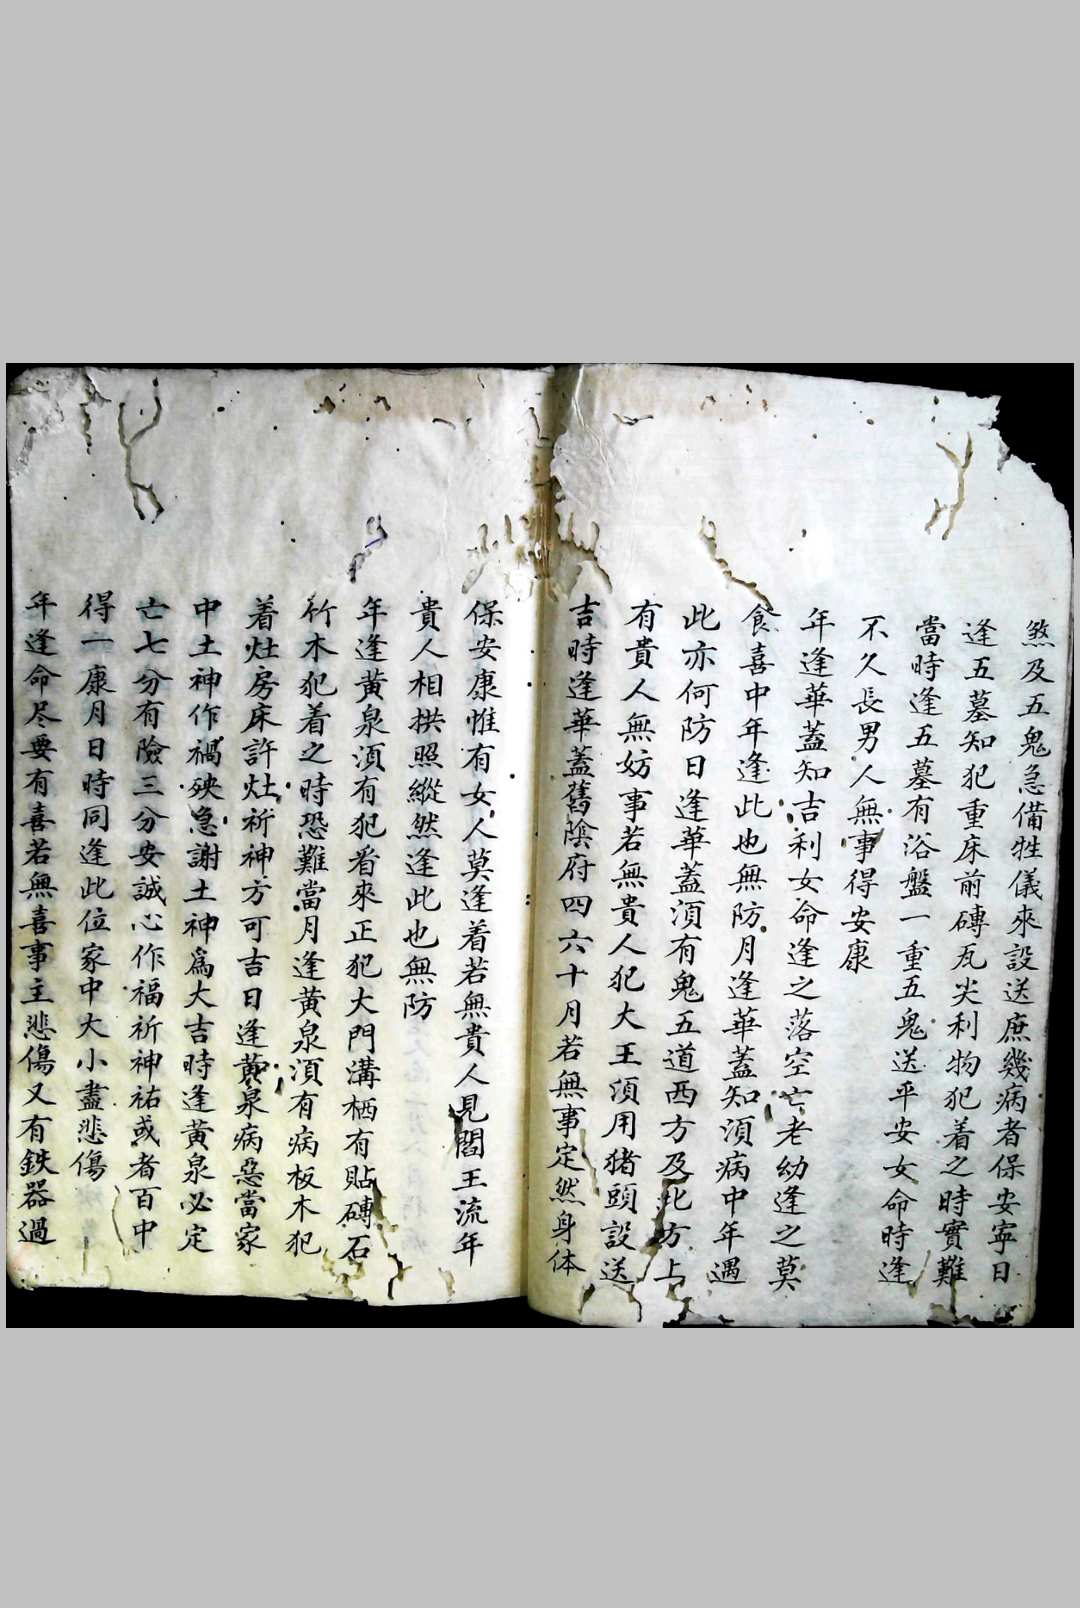 煞及五鬼急備牲儀來設送庶幾病者保安寧日
逢五墓知犯重床前磚瓦尖利物犯着之時實難
當時逢五墓有浴盤一重五鬼送平安女命時逢
不久長男人無事得安康
年逢華蓋知吉利女命逢之落空亡老幼逢之莫
食喜中年逢此也無防月逢華蓋知湏病中年遇
此亦何防日逢華蓋湏有鬼五道西方及北方上
有貴人無妨事若無貴人犯大王湏用猪頭設送
吉時逢華蓋舊陰府四六十月若無事定然身体
保安康惟有女人莫逢着若無貴人見閻王流年
貴人相拱照縱然逢此也無防
年逢黄泉湏有犯看來正犯大門溝栖有貼磚石
竹木犯着之時恐難當月逢黄泉湏有病板木犯
着灶房床許灶祈神方可吉日逢黄泉病惡當家
中土神作禍殃急謝土神爲大吉時逢黄泉必定
亡七分有險三分安誠心作福祈神祐或者百中
得一康月日時同逢此位家中大小盡悲傷
年逢命尽要有喜若無喜事主悲傷又有鉄器過